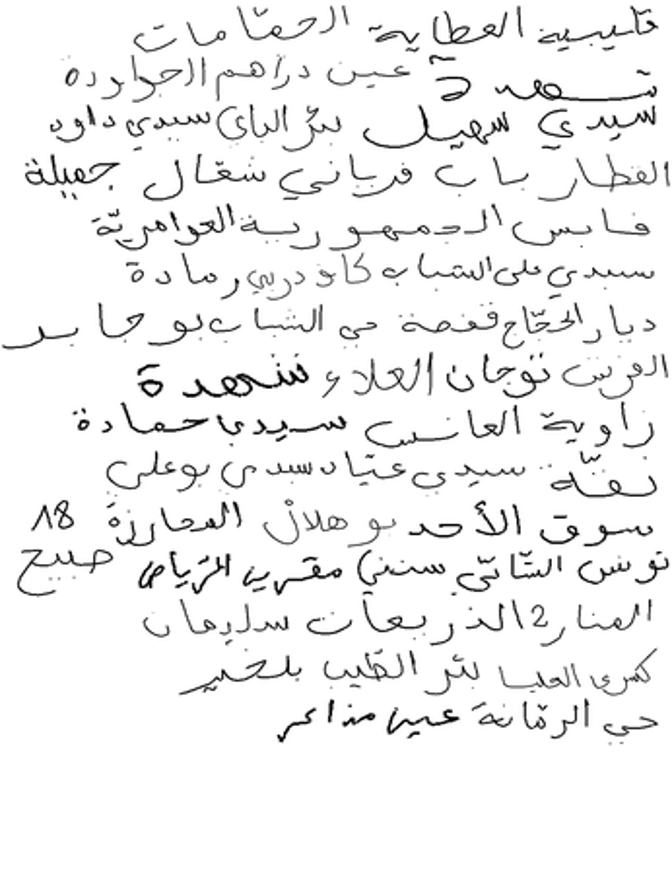 قليبية العطاية الحمّامات
شهدة عين دراهم الحواردة
سيدي سهيل بئر الباي سيدي داود
الفطار باب فرياني شغال جميلة
قابس الجمهورية العوامريّة
سيدي علي الشباب كاف دربي رمادة
ديار الحجّاج قفصة حي الشباب بوجابر
الغريس توجان العلاء شهدة
زاوية العانس سيدي حمادة
نفّة سيدي عيّاد سيدي بوعلي
سوق الأحد بو هلال المحارزة 18
تونس الشّاتّي سنني مقرين الرّياض صبيح
المنار 2 الذريعات سليمان
كسرى العليا بئر الطيّب بلخير
حي الرمّانة عين مذاعر